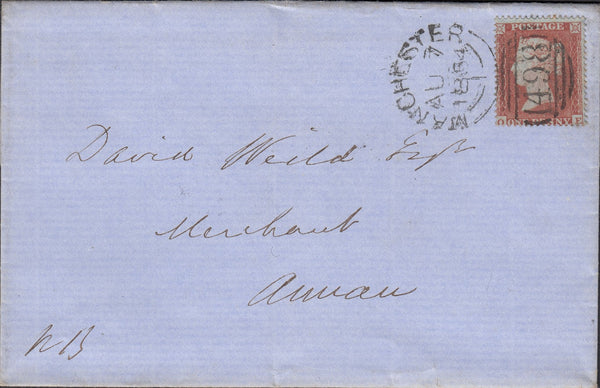 MANCHESTER
AU 7
1854
POSTAGE
498
ONE PENNY
David Weild Esqr
Merchant
Annan
N B